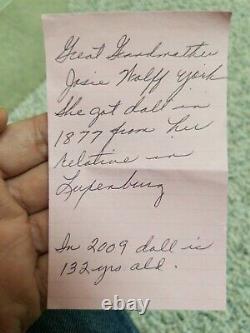 Great Grandmather
Josie Wolff York
She got doll in
1877 from her
relative in
Luxenburg
In 2009 doll is
132 yrs old.